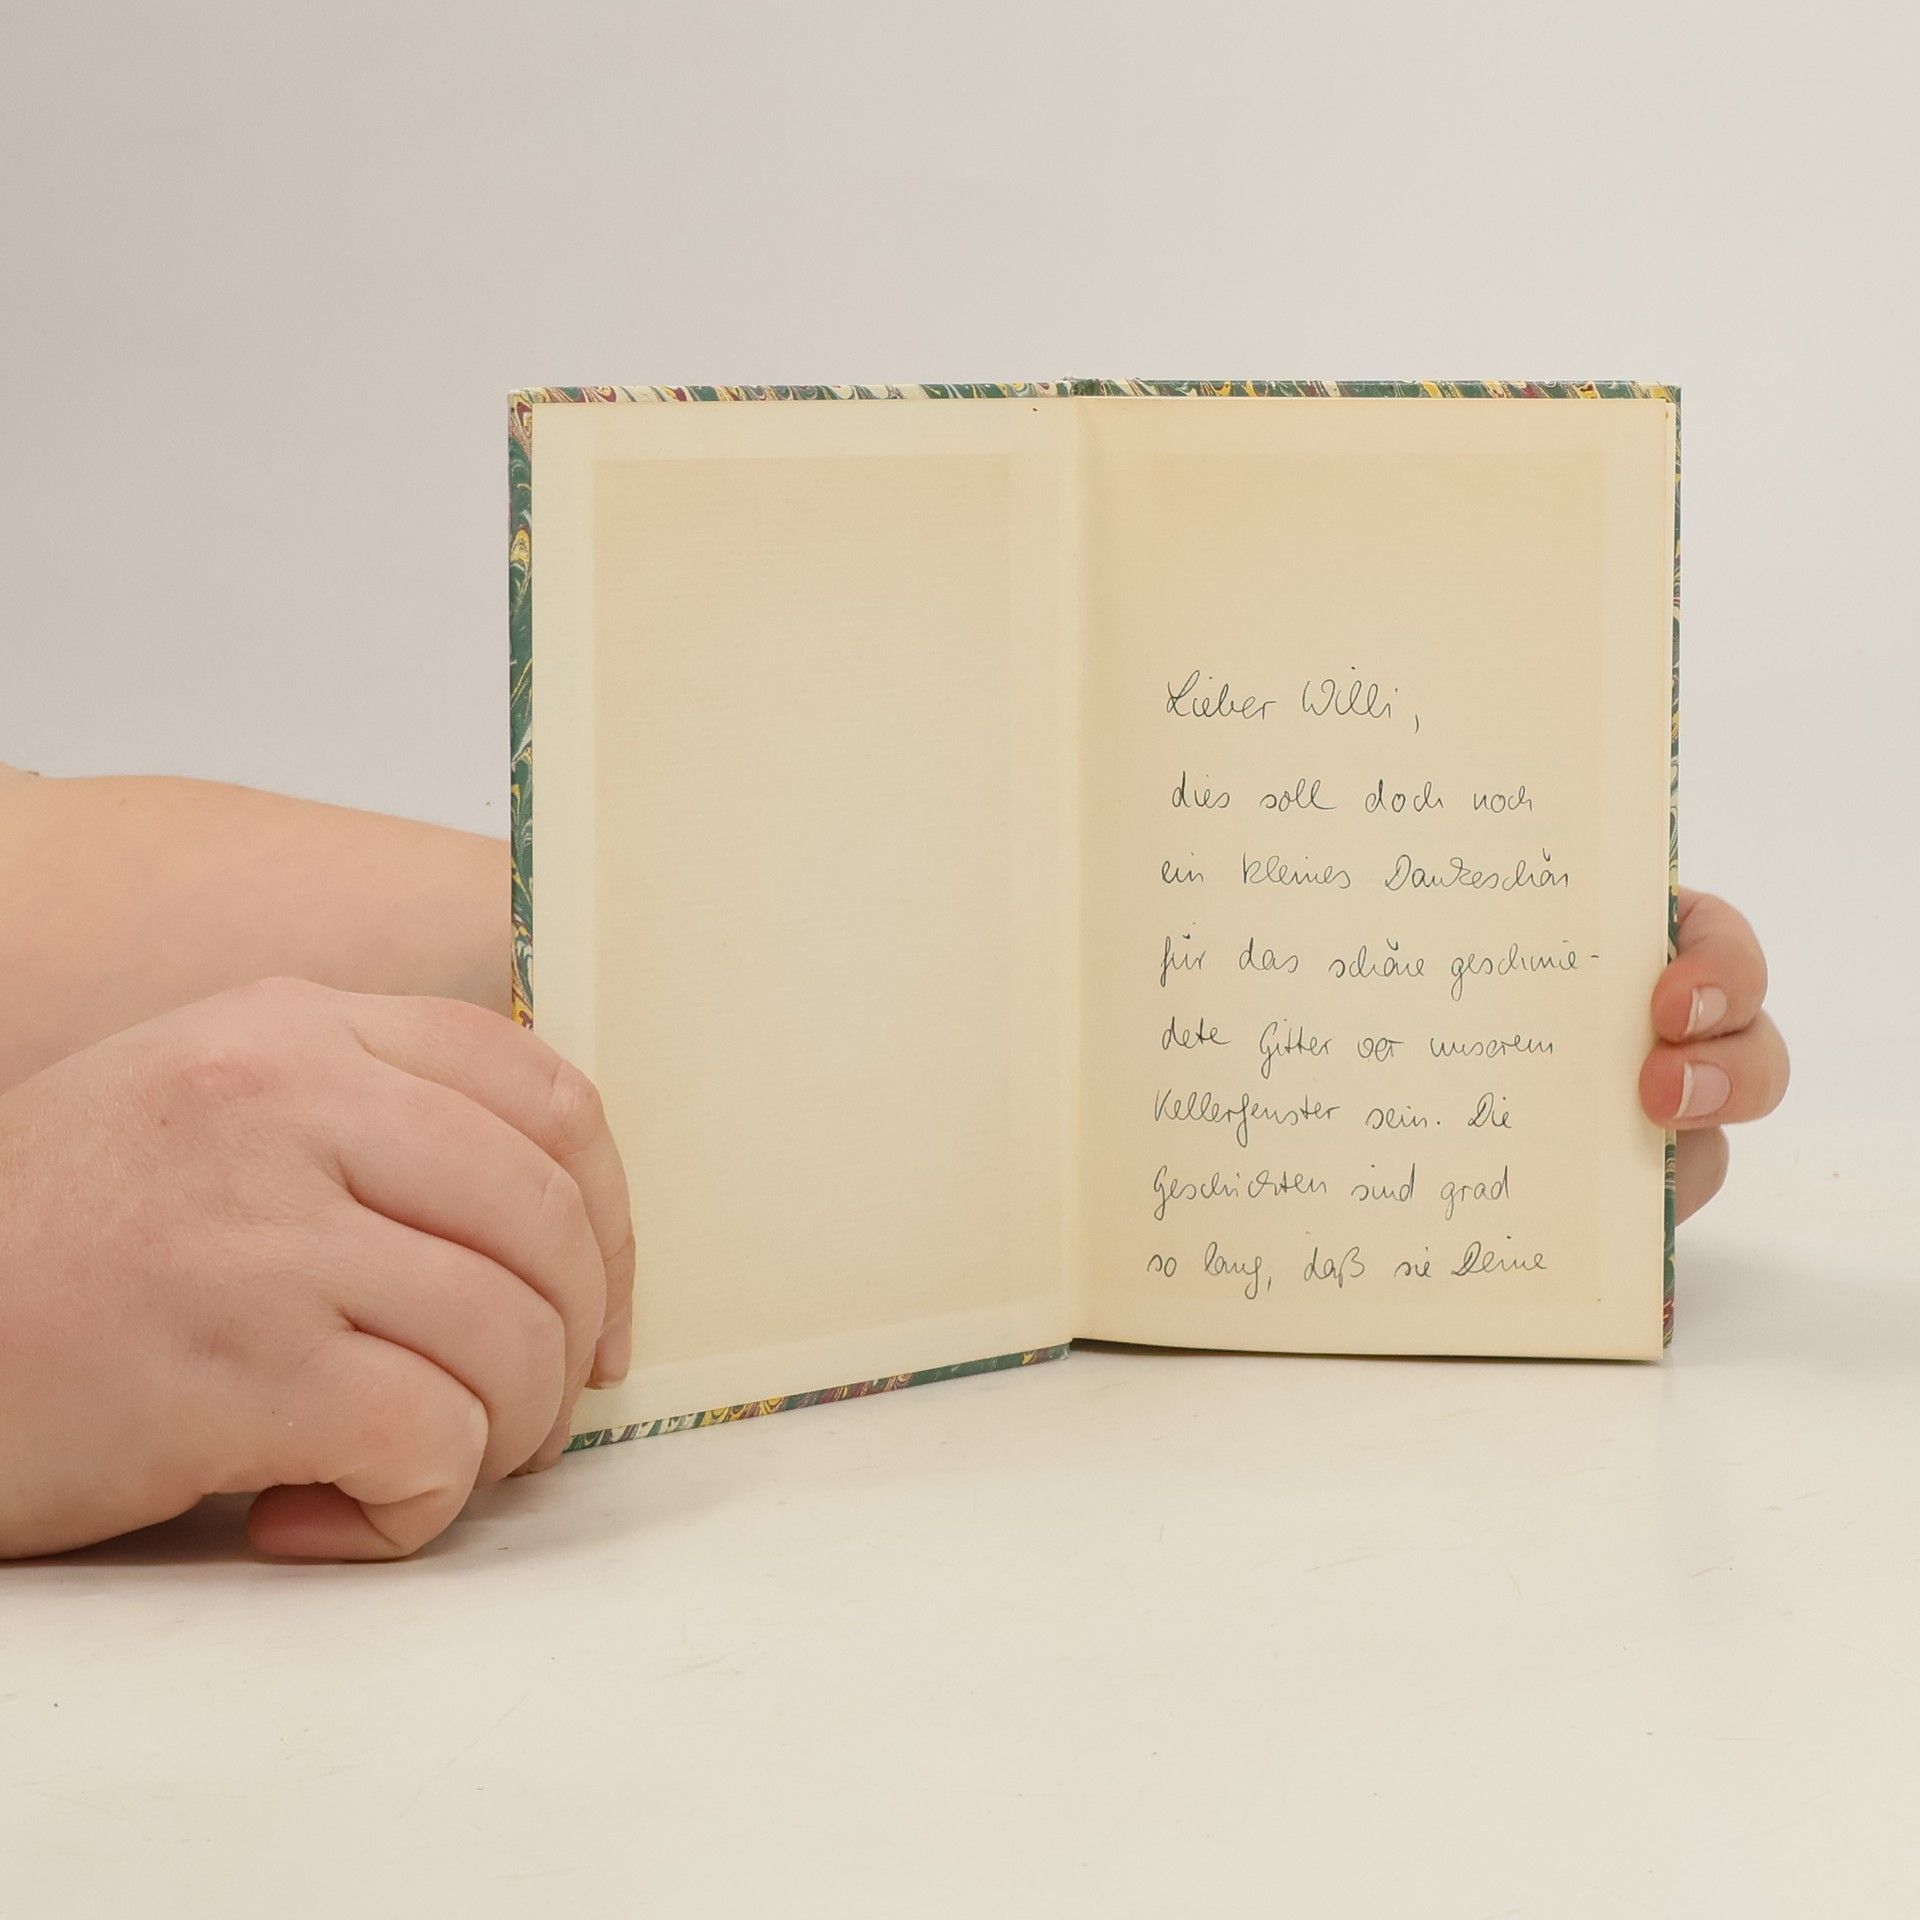 Lieber Willi,
dies soll doch noch
ein kleines Dankeschön
für das schöne geschmie-
dete Gitter vor unserem
Kellerfenster sein. Die
Geschichten sind grad
so lang, daß sie Deine